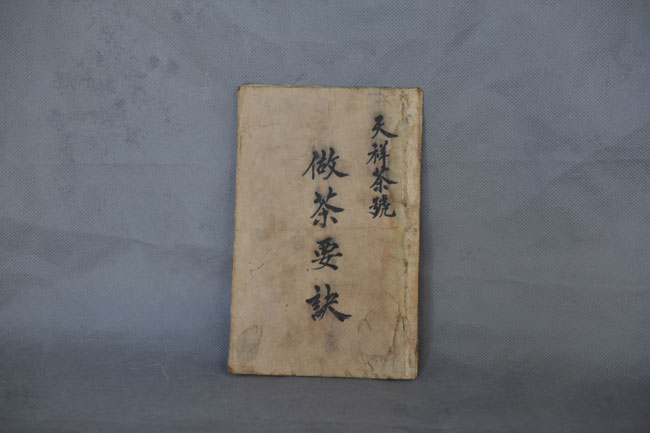 天祥茶號
做茶要訣